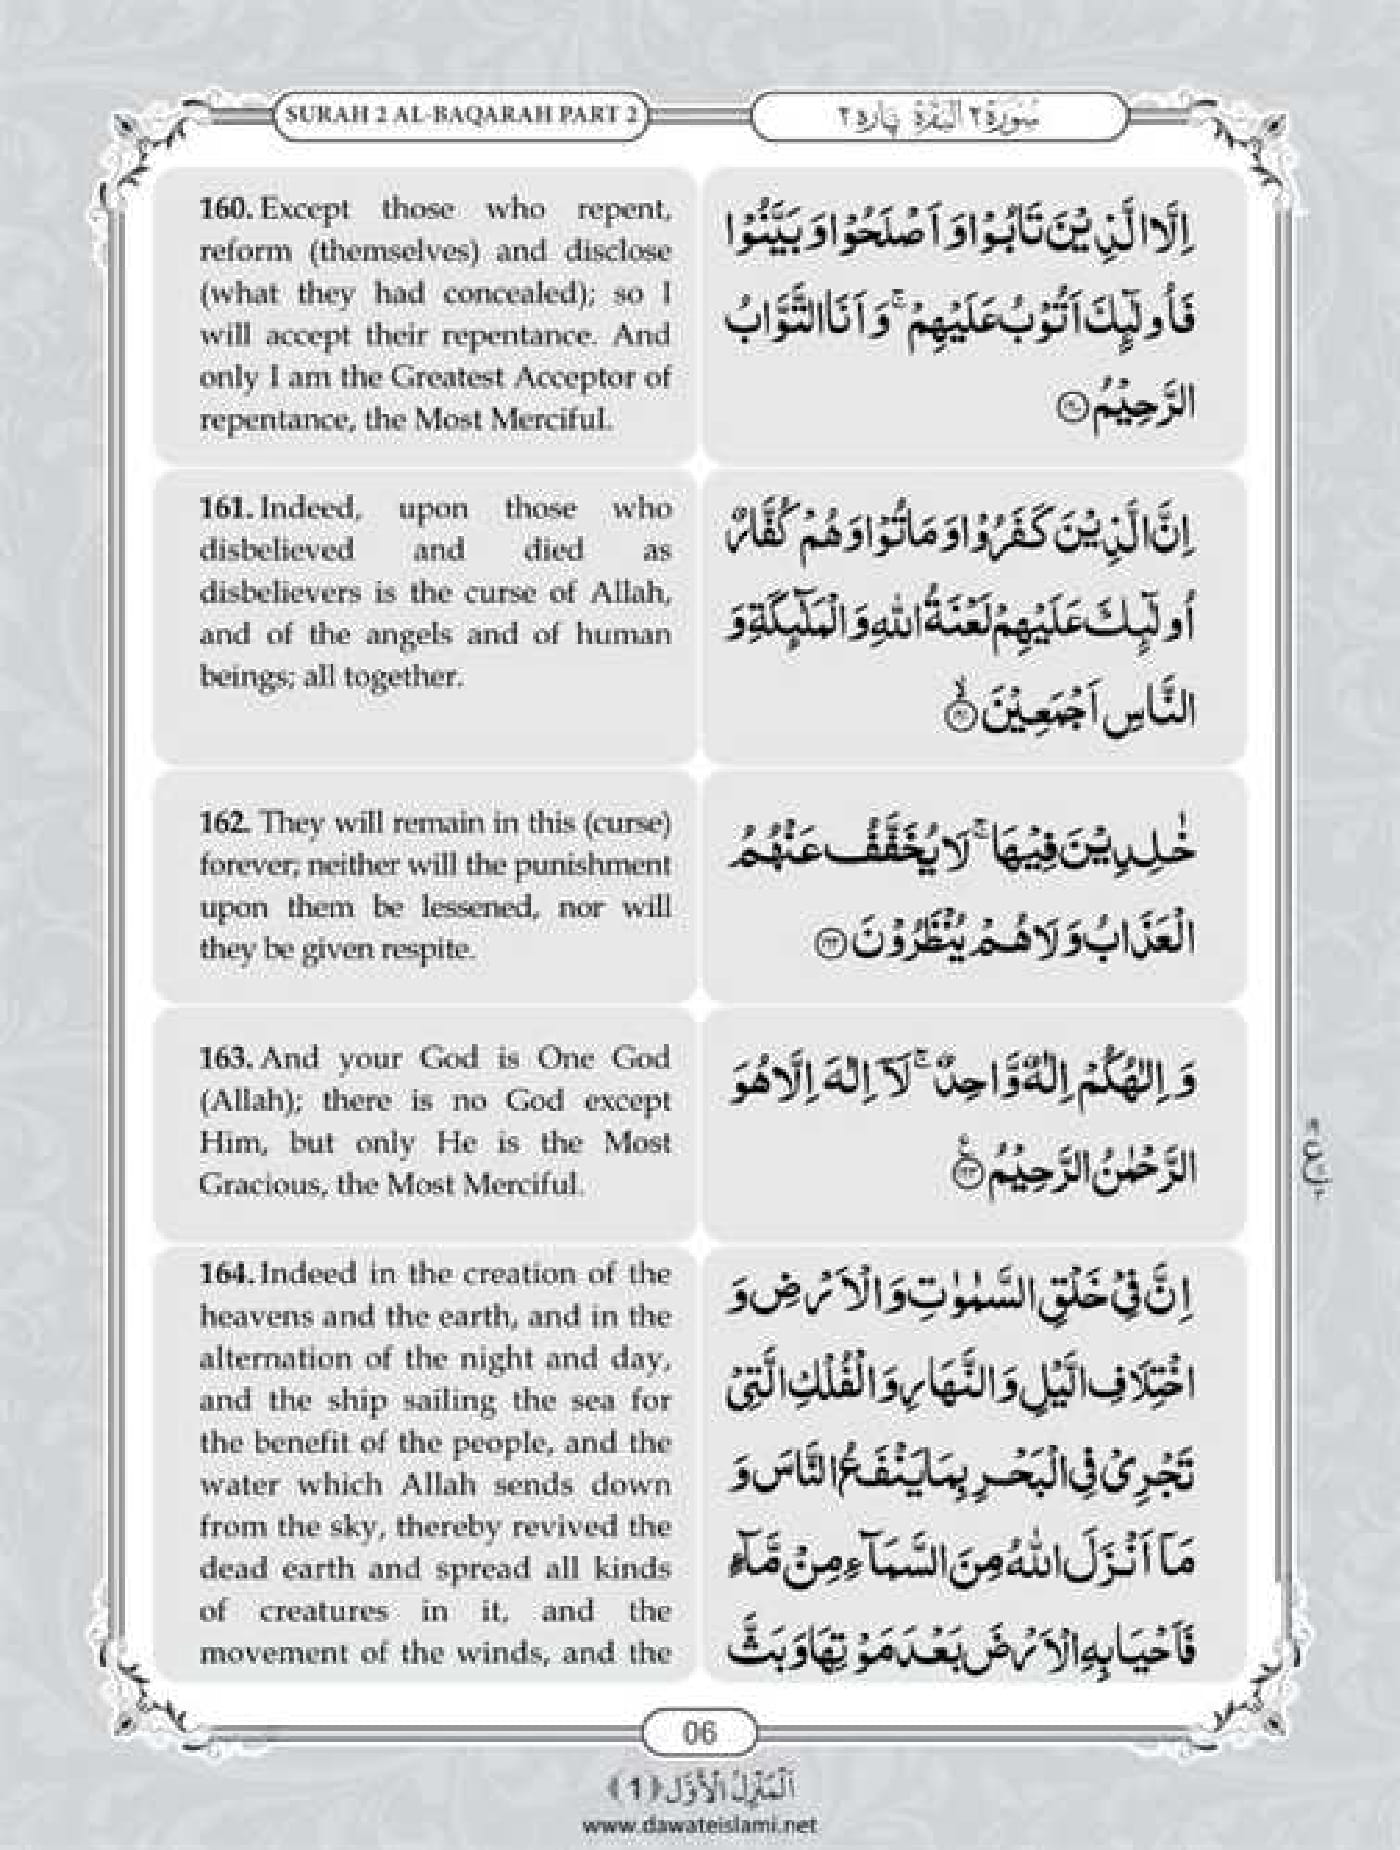 SURAH 2 AL-BAQARAH PART 2
سُوْرَةُ ٢ الْبَقَرَة پاره ٢
160. Except those who repent,
reform (themselves) and disclose
(what they had concealed); so I
will accept their repentance. And
only I am the Greatest Acceptor of
repentance, the Most Merciful.
اِلَّا الَّذِيْنَ تَابُوْا وَ اَصْلَحُوْا وَ بَيَّنُوْا
فَاُولٰٓىِٕكَ اَتُوْبُ عَلَيْهِمْ ۚ وَ اَنَا التَّوَّابُ
الرَّحِيْمُ ۝۱۶۰
161. Indeed, upon those who
disbelieved and died as
disbelievers is the curse of Allah,
and of the angels and of human
beings; all together.
اِنَّ الَّذِيْنَ كَفَرُوْا وَ مَاتُوْا وَ هُمْ كُفَّارٌ
اُولٰٓىِٕكَ عَلَيْهِمْ لَعْنَةُ اللّٰهِ وَ الْمَلٰٓىِٕكَةِ وَ
النَّاسِ اَجْمَعِيْنَ ۝۱۶۱
162. They will remain in this (curse)
forever; neither will the punishment
upon them be lessened, nor will
they be given respite.
خٰلِدِيْنَ فِيْهَا ۚ لَا يُخَفَّفُ عَنْهُمُ
الْعَذَابُ وَ لَا هُمْ يُنْظَرُوْنَ ۝۱۶۲
163. And your God is One God
(Allah); there is no God except
Him, but only He is the Most
Gracious, the Most Merciful.
وَ اِلٰهُكُمْ اِلٰهٌ وَّاحِدٌ ۚ لَاۤ اِلٰهَ اِلَّا هُوَ
الرَّحْمٰنُ الرَّحِيْمُ ۝۱۶۳
164. Indeed in the creation of the
heavens and the earth, and in the
alternation of the night and day,
and the ship sailing the sea for
the benefit of the people, and the
water which Allah sends down
from the sky, thereby revived the
dead earth and spread all kinds
of creatures in it, and the
movement of the winds, and the
اِنَّ فِيْ خَلْقِ السَّمٰوٰتِ وَ الْاَرْضِ وَ
اخْتِلَافِ الَّيْلِ وَ النَّهَارِ وَ الْفُلْكِ الَّتِيْ
تَجْرِيْ فِي الْبَحْرِ بِمَا يَنْفَعُ النَّاسَ وَ
مَاۤ اَنْزَلَ اللّٰهُ مِنَ السَّمَآءِ مِنْ مَّآءٍ
فَاَحْيَا بِهِ الْاَرْضَ بَعْدَ مَوْتِهَا وَ بَثَّ
06
اَلْمَنْزِلُ الْاَوَّل ﴿1﴾
www.dawateislami.net